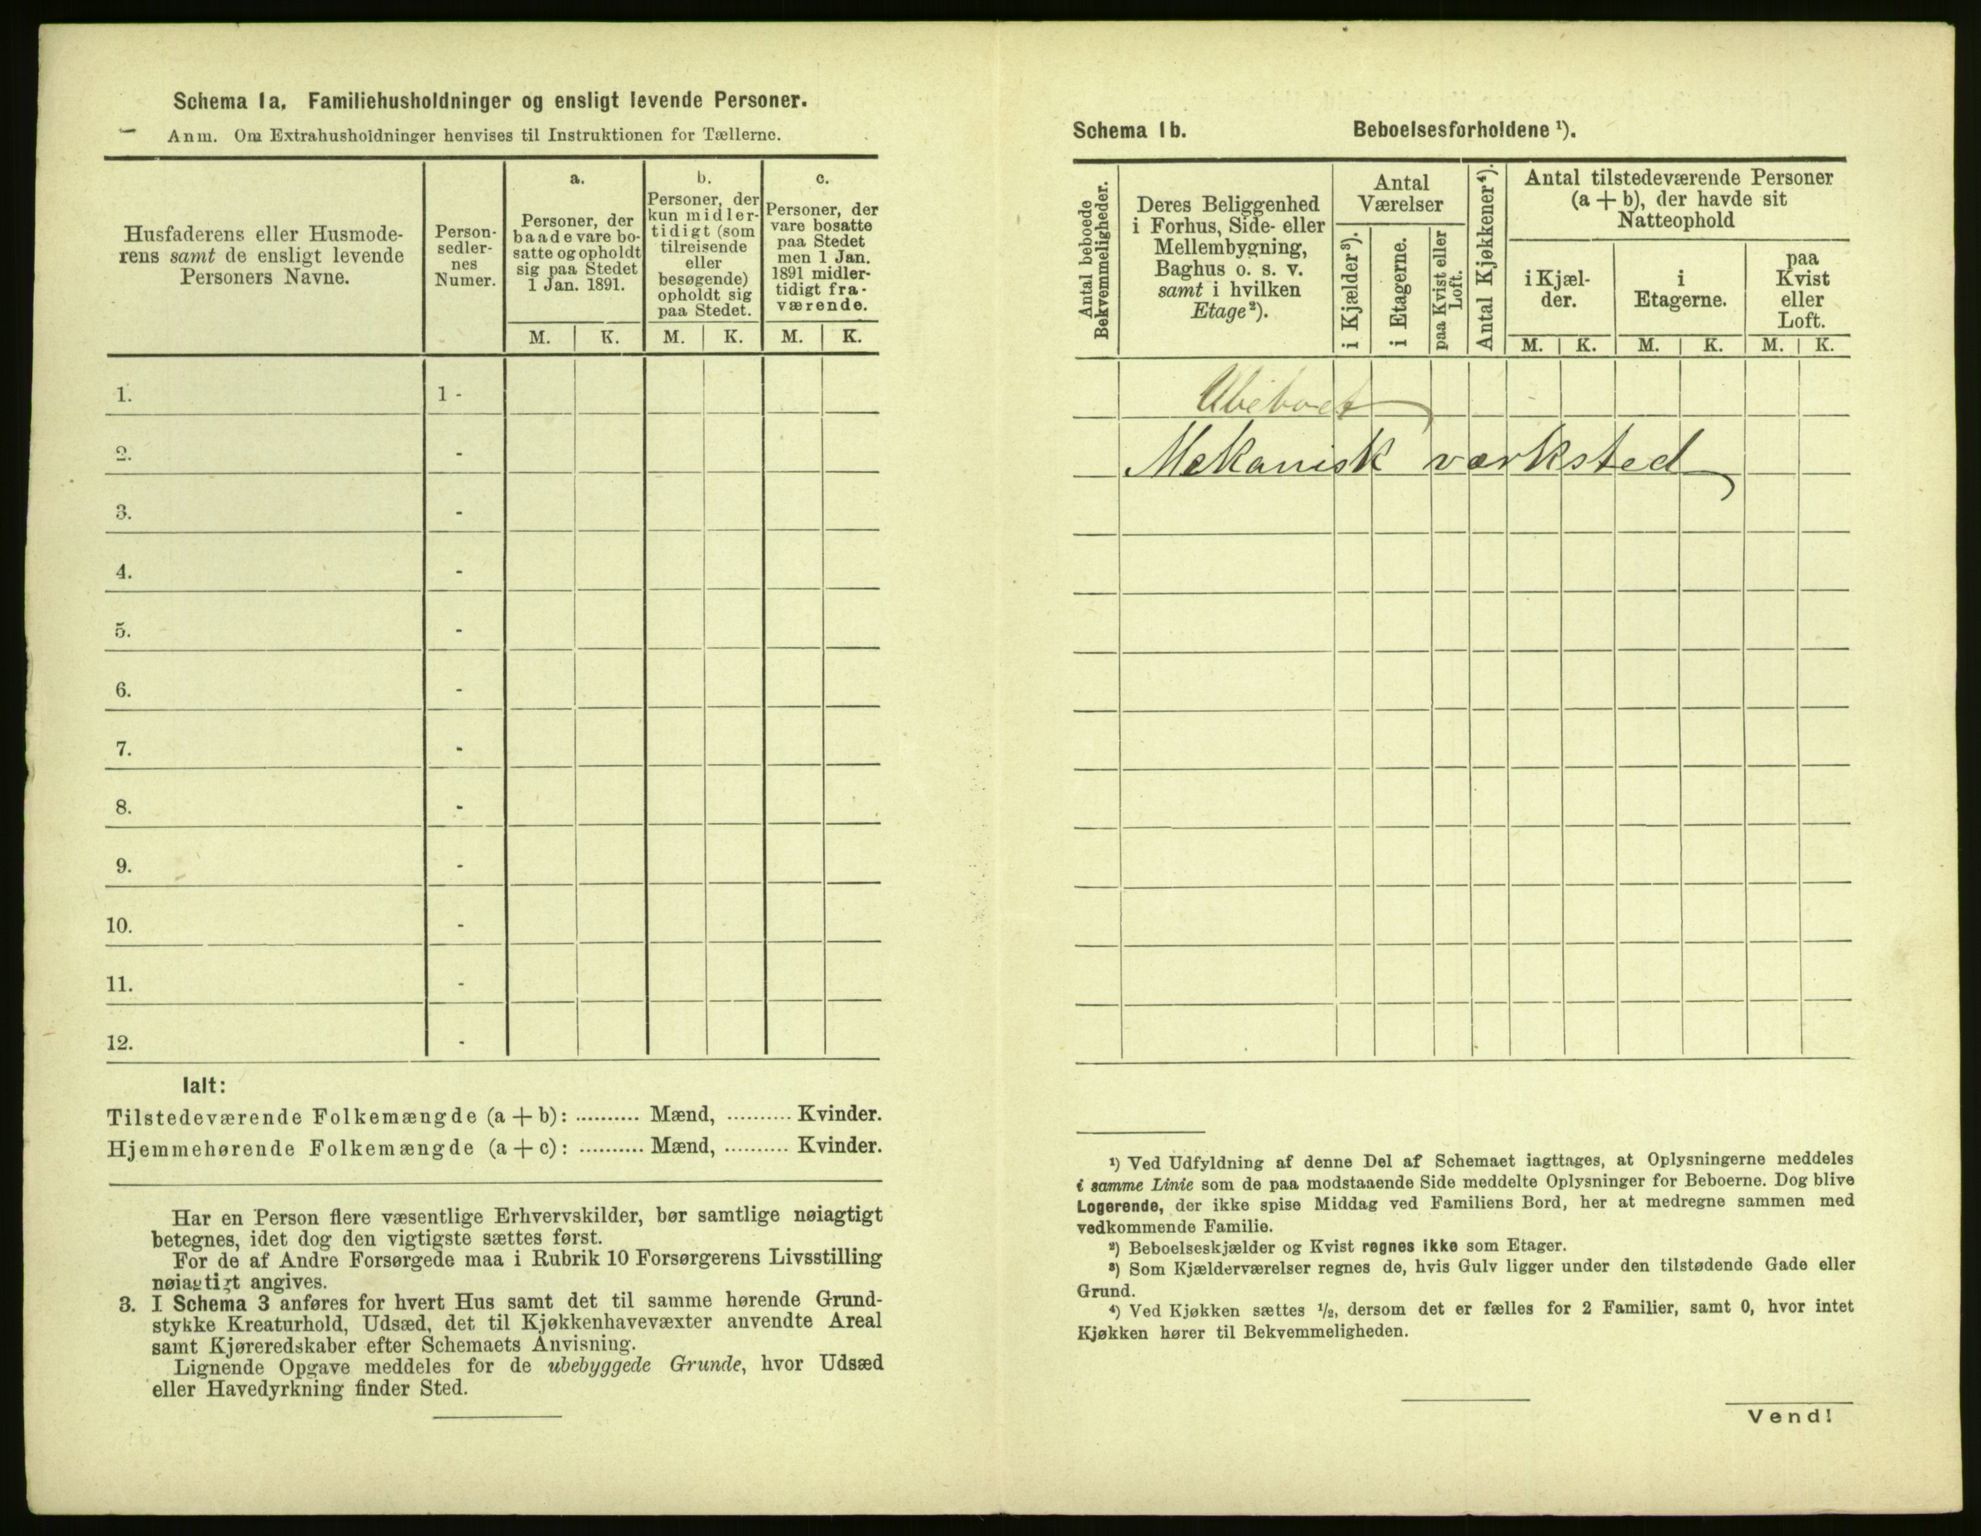 Schema 1a. Familiehusholdninger og ensligt levende Personer.
Anm. Om Extrahusholdninger henvises til Instruktionen for Tællerne.
Husfaderens eller Husmode-
rens samt de ensligt levende
Personers Navne.
Person-
sedler-
nes
Numer.
a.
Personer, der
baade vare bo-
satte og opholdt
sig paa Stedet
1 Jan. 1891.
b.
Personer, der
kun midler-
tidigt (som
tilreisende
eller
besøgende)
opholdt sig
paa Stedet.
c.
Personer, der
vare bosatte
paa Stedet
men 1 Jan.
1891 midler-
tidigt fra-
værende.
M. K. M. K. M. K.
1. 1 -
2. -
3. -
4. -
5. -
6. -
7. -
8. -
9. -
10. -
11. -
12. -
Ialt:
Tilstedeværende Folkemængde (a + b): .......... Mænd, .......... Kvinder.
Hjemmehørende Folkemængde (a + c): .......... Mænd, .......... Kvinder.
Har en Person flere væsentlige Erhvervskilder, bør samtlige nøiagtigt
betegnes, idet dog den vigtigste sættes først.
For de af Andre Forsørgede maa i Rubrik 10 Forsørgerens Livsstilling
nøiagtigt angives.
3. I Schema 3 anføres for hvert Hus samt det til samme hørende Grund-
stykke Kreaturhold, Udsæd, det til Kjøkkenhavevæxter anvendte Areal
samt Kjøreredskaber efter Schemaets Anvisning.
Lignende Opgave meddeles for de ubebyggede Grunde, hvor Udsæd
eller Havedyrkning finder Sted.
Schema 1b. Beboelsesforholdene ¹).
Antal beboede
Bekvemmeligheder.
Deres Beliggenhed
i Forhus, Side- eller
Mellembygning,
Baghus o. s. v.
samt i hvilken
Etage²).
Antal
Værelser
i Kjælder³).
i Etagerne.
paa Kvist eller
Loft.
Antal Kjøkkener⁴).
Antal tilstedeværende Personer
(a + b), der havde sit
Natteophold
i Kjæl-
der.
i
Etagerne.
paa
Kvist
eller
Loft.
M. K. M. K. M. K.
Ubeboet
Mekanisk værksted
¹) Ved Udfyldning af denne Del af Schemaet iagttages, at Oplysningerne meddeles
i samme Linie som de paa modstaaende Side meddelte Oplysninger for Beboerne. Dog blive
Logerende, der ikke spise Middag ved Familiens Bord, her at medregne sammen med
vedkommende Familie.
²) Beboelseskjælder og Kvist regnes ikke som Etager.
³) Som Kjælderværelser regnes de, hvis Gulv ligger under den tilstødende Gade eller
Grund.
⁴) Ved Kjøkken sættes ½, dersom det er fælles for 2 Familier, samt 0, hvor intet
Kjøkken hører til Bekvemmeligheden.
Vend!